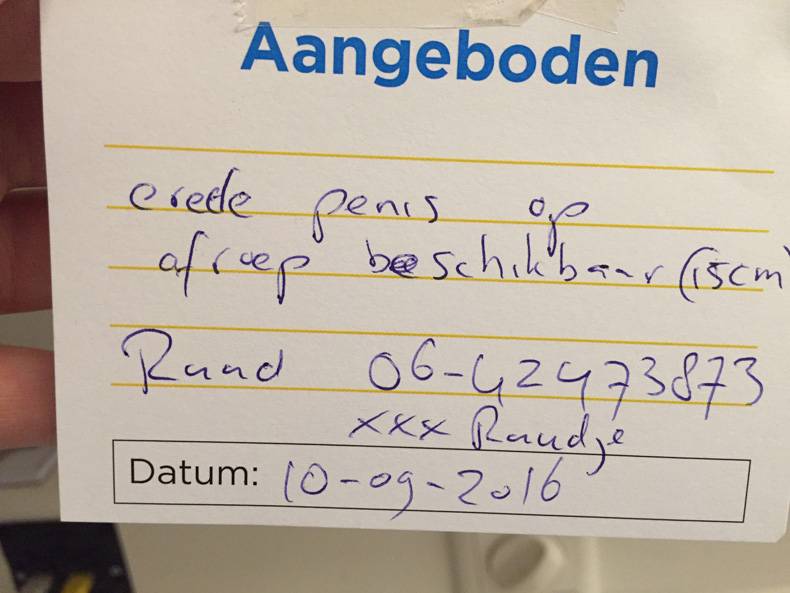 Aangeboden
erede penis op
afroep beschikbaar (15cm)
Ruud 06-42473873
xxx Ruudje
Datum: 10-09-2016